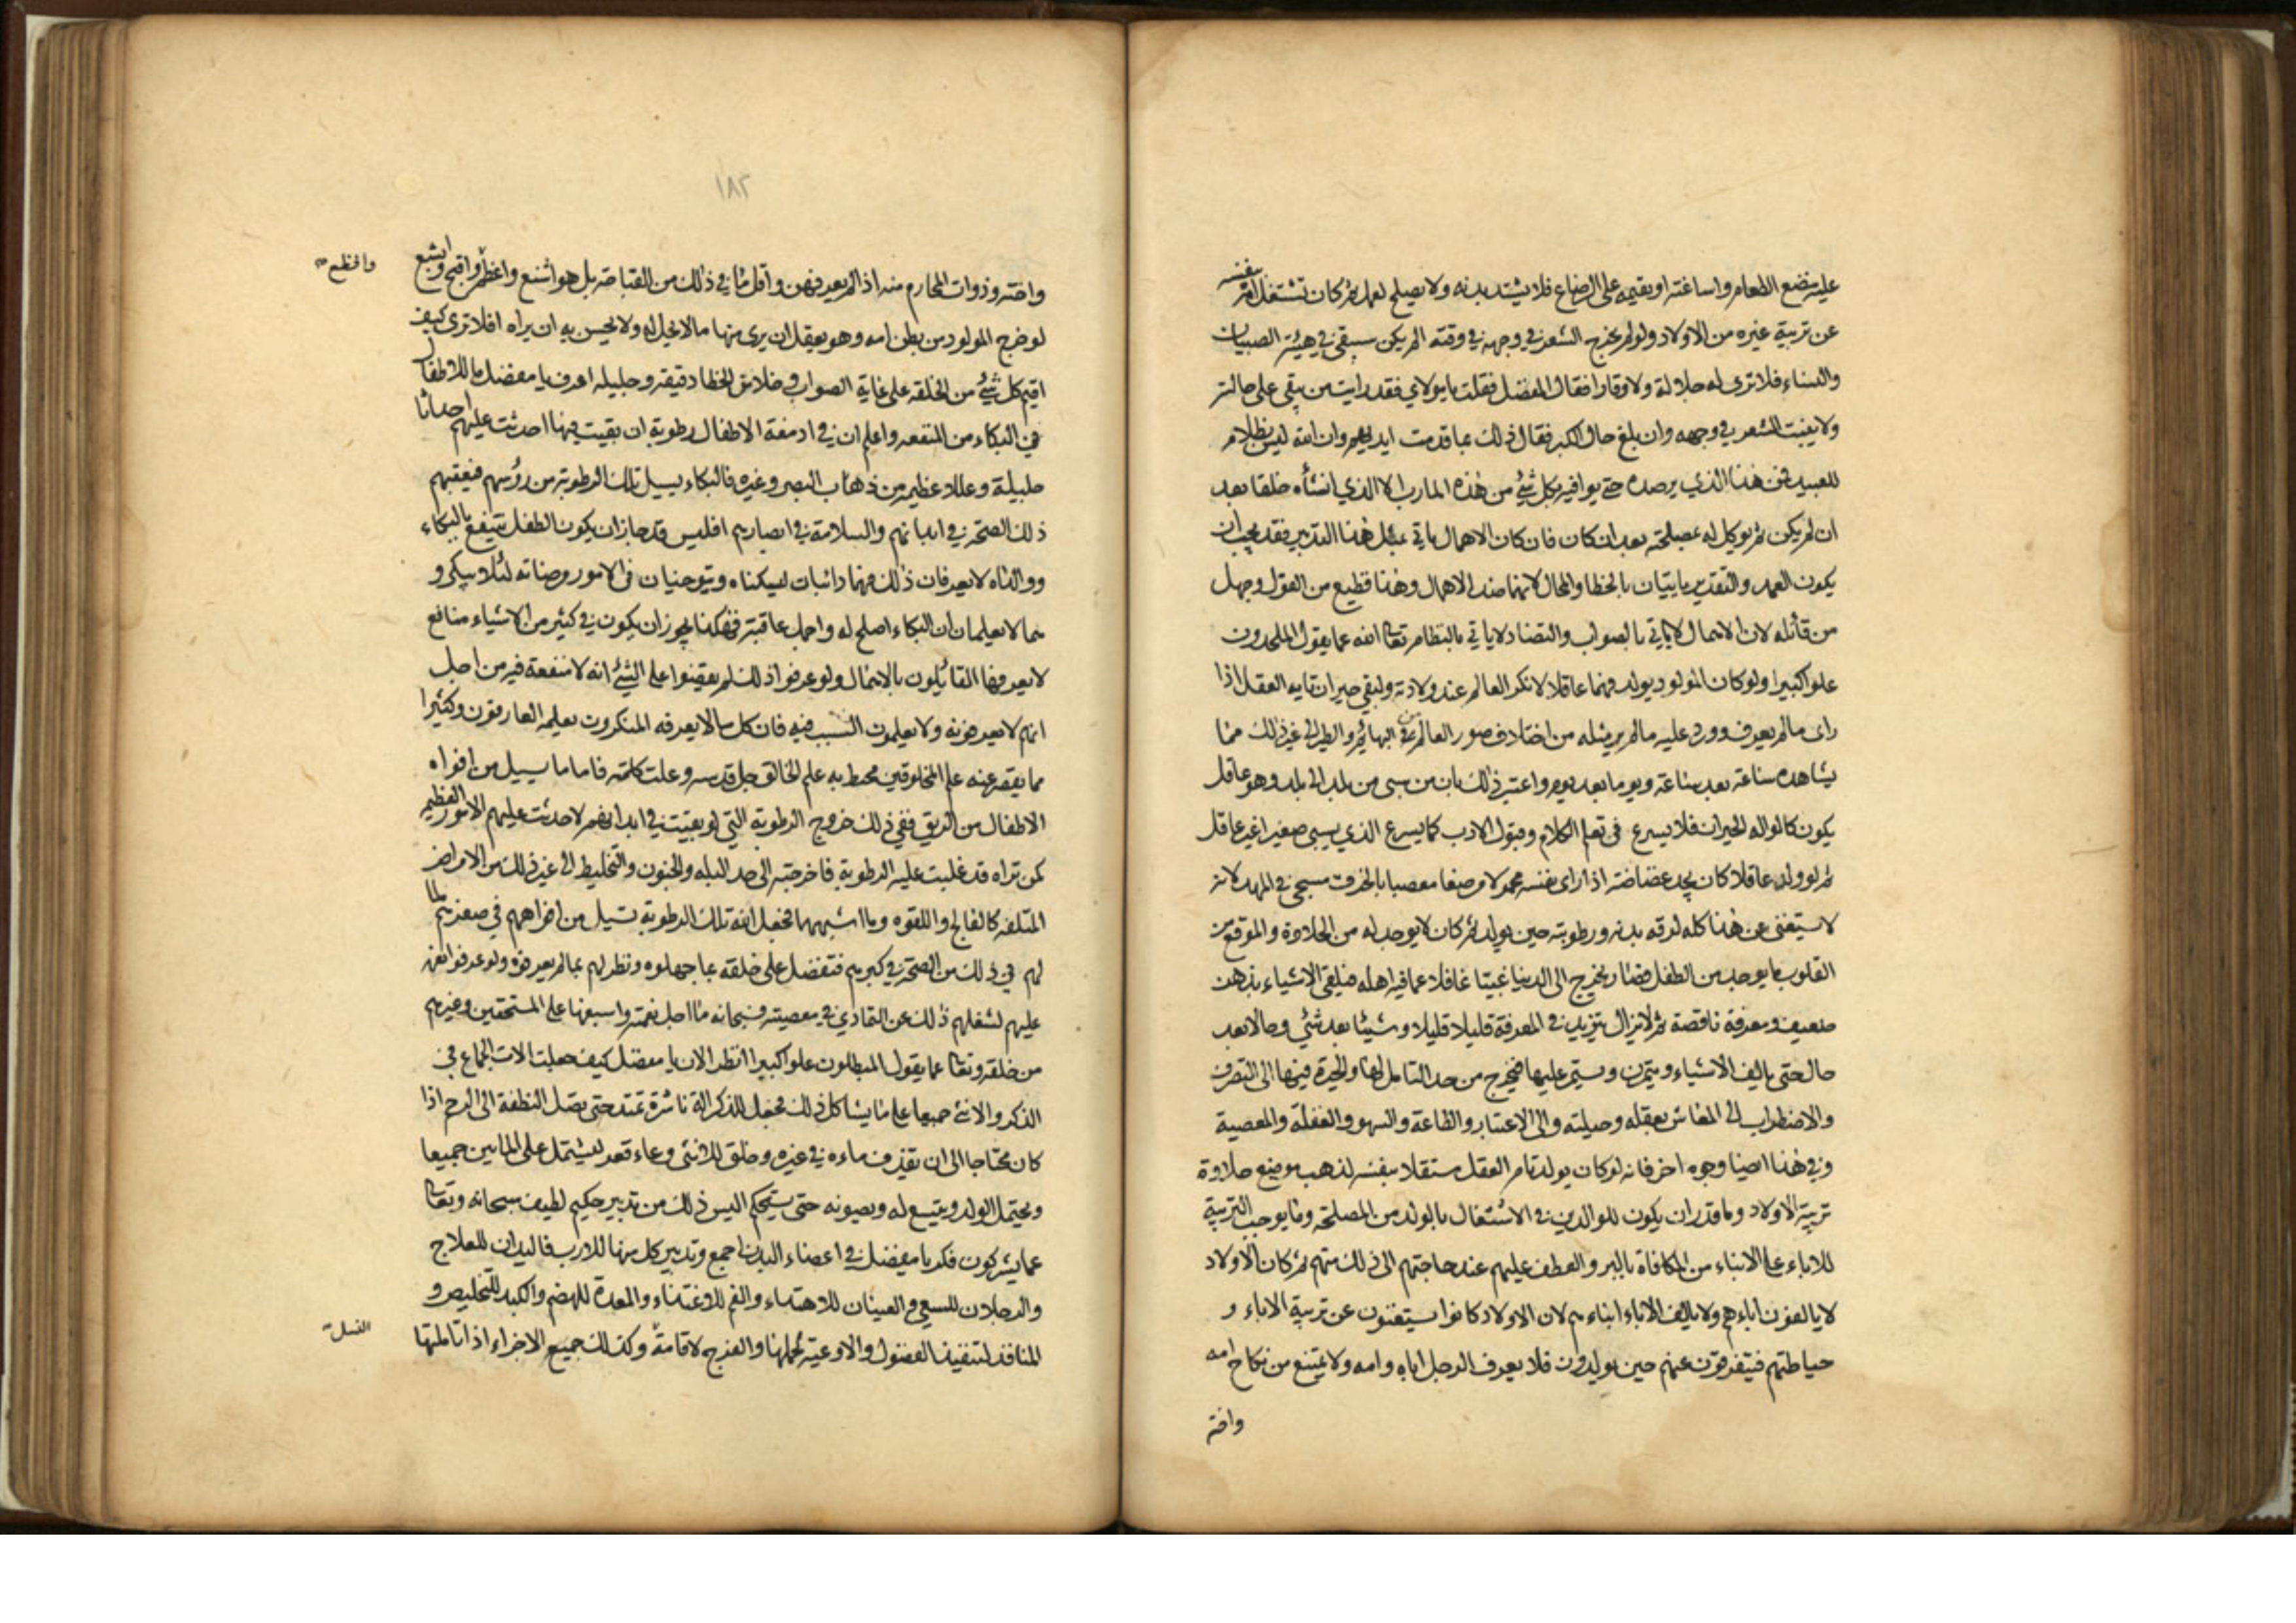 عليه مضغ الطعام واساغته او يقيمه على الرضاع فلا يشتد بدنه ولا يصلح لعمل ثم كان تشتغل امه بنفسه
عن تربية غيره من الاولاد ولو لم يخرج الشعر في وجهه في وقته الم يكن سيبقى في هيئة الصبيان
والنساء فلا ترى له جلالة ولا وقارا فقال المفضل فقلت يا مولاي فقد رايت من يبقى على حالته
ولا ينبت الشعر في وجهه وان بلغ حال الكبر فقال ذلك بما قدمت ايديهم وان الله ليس بظلام
للعبيد فمن هذا الذي يرصده حتى يوافيه بكل شئ من هذه المارب الا الذي انشأه خلقا بعد
ان لم يكن ثم توكل له بمصلحته بعد ان كان فان كان الاهمال ياتي بمثل هذا التدبير فقد يجب ان
يكون العمد والتقدير ياتيان بالخطا والمحال لانهما ضد الاهمال وهذا فظيع من القول وجهل
من قائله لان الاهمال لا ياتي بالصواب والتضاد لا ياتي بالنظام تعالى الله عما يقول الملحدون
علوا كبيرا ولو كان المولود يولد فهما عاقلا لانكر العالم عند ولادته ولبقي حيران تايه العقل اذا
راى ما لم يعرف وورد عليه ما لم ير مثله من اختلاف صور العالم من البهائم والطير الى غير ذلك مما
يشاهده ساعة بعد ساعة ويوما بعد يوم واعتبر ذلك بان من سبى من بلد الى بلد وهو عاقل
يكون كالواله الحيران فلا يسرع في تعلم الكلام وقبول الادب كما يسرع الذي يسبى صغيرا غير عاقل
ثم لو ولد عاقلا كان يجد غضاضة اذا راى نفسه محمولا مرضعا معصبا بالخرق مسجى في المهد لانه
لا يستغنى عن هذا كله لرقه بدنه ورطوبته حين يولد ثم كان لا يوجد له من الحلاوة والموقع من
القلوب ما يوجد من الطفل فصار يخرج الى الدنيا غبيا غافلا عما فيه اهله فيلقى الاشياء بذهن
ضعيف ومعرفة ناقصة ثم لا يزال يتزيد في المعرفة قليلا قليلا وشيئا بعد شئ وحالا بعد
حال حتى يالف الاشياء ويتمرن ويستمر عليها فيخرج من حد التامل لها والحيرة فيها الى التصرف
والاضطراب الى المعاش بعقله وحيلته والى الاعتبار والطاعة والسهو والغفلة والمعصية
وفي هذا ايضا وجوه اخر فانه لو كان يولد تام العقل مستقلا بنفسه لذهب موضع حلاوة
تربية الاولاد وما قدر ان يكون للوالدين في الاشتغال بالولد من المصلحة وما يوجب التربية
للاباء على الابناء من المكافاة بالبر والعطف عليهم عند حاجتهم الى ذلك منهم ثم كان الاولاد
لا يالفون اباءهم ولا يالف الاباء ابناءهم لان الاولاد كانوا يستغنون عن تربية الاباء و
حياطتهم فيتفرقون عنهم حين يولدون فلا يعرف الرجل اباه وامه ولا يمتنع من نكاح امه
واخته
١٨٢
واخته وذوات المحارم منه اذا لم يعرفهن واقل ما في ذلك من القباحة بل هو اشنع واعظم واقبح وابشع
وافظع
لو خرج المولود من بطن امه وهو يعقل ان يرى منها ما لا يحل له ولا يحسن به ان يراه افلا ترى كيف
اقيم كل شئ من الخلقه على غاية الصواب وخلا من الخطا دقيقه وجليله اعرف يا مفضل ما للاطفال
في البكاء من المنفعه واعلم ان في ادمغة الاطفال رطوبة ان بقيت فيها احدثت عليهم احداثا
جليلة وعللا عظيمة من ذهاب البصر وغيره فالبكاء يسيل تلك الرطوبة من رؤسهم فيعقبهم
ذلك الصحة في ابدانهم والسلامة في ابصارهم افليس قد جاز ان يكون الطفل ينتفع بالبكاء
ووالداه لا يعرفان ذلك فهما دائبان ليسكتاه ويتوخيان في الامور مرضاته لئلا يبكي و
هما لا يعلمان ان البكاء اصلح له واجمل عاقبة فهكذا يجوز ان يكون في كثير من الاشياء منافع
لا يعرفها القائلون بالاهمال ولو عرفوا ذلك لم يقضوا على الشئ انه لا منفعة فيه من اجل
انهم لا يعرفونه ولا يعلمون السبب فيه فان كل ما لا يعرفه المنكرون يعلمه العارفون وكثيرا
مما يقصر عنه علم المخلوقين محيط به علم الخالق جل قدسه وعلت كلمته فاما ما يسيل من افواه
الاطفال من الريق ففي ذلك خروج الرطوبة التي لو بقيت في ابدانهم لاحدثت عليهم الامور العظيمة
كمن تراه قد غلبت عليه الرطوبة فاخرجته الى حد البله والجنون والتخليط الى غير ذلك من الامراض
المتلفه كالفالج واللقوه وما اشبههما فجعل الله تلك الرطوبة تسيل من افواههم في صغرهم لما
لهم في ذلك من الصحة في كبرهم فتفضل على خلقه بما جهلوه ونظر لهم بما لم يعرفوه ولو عرفوا نعمه
عليهم لشغلهم ذلك عن التمادي في معصيته فسبحانه ما اجل نعمته واسبغها على المستحقين وغيرهم
من خلقه وتعالى عما يقول المبطلون علوا كبيرا انظر الان يا مفضل كيف جعلت الات الجماع في
الذكر والانثى جميعا على ما يشاكل ذلك فجعل للذكر الة ناشزة تمتد حتى تصل النطفة الى الرحم اذا
كان محتاجا الى ان يقذف ماءه في غيره وخلق للانثى وعاء قعر ليشتمل على المائين جميعا
ويحتمل الولد ويتسع له ويصونه حتى يستحكم اليس ذلك من تدبير حكيم لطيف سبحانه وتعالى
عما يشركون فكر يا مفضل في اعضاء البدن اجمع وتدبير كل منها للارب فاليدان للعلاج
والرجلان للسعي والعينان للاهتداء والفم للاغتذاء والمعدة للهضم والكبد للتخليص و
المنافذ لتنفيذ الفضول والاوعية لحملها والفرج لاقامة وكذلك جميع الاجزاء اذا تاملتها
النسل